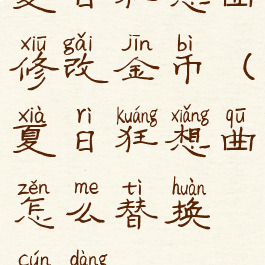 夏日狂想曲
xiū gǎi jīn bì
修改金币(
xià rì kuáng xiǎng qū
夏日狂想曲
zěn me tì huàn
怎么替换
cún dàng